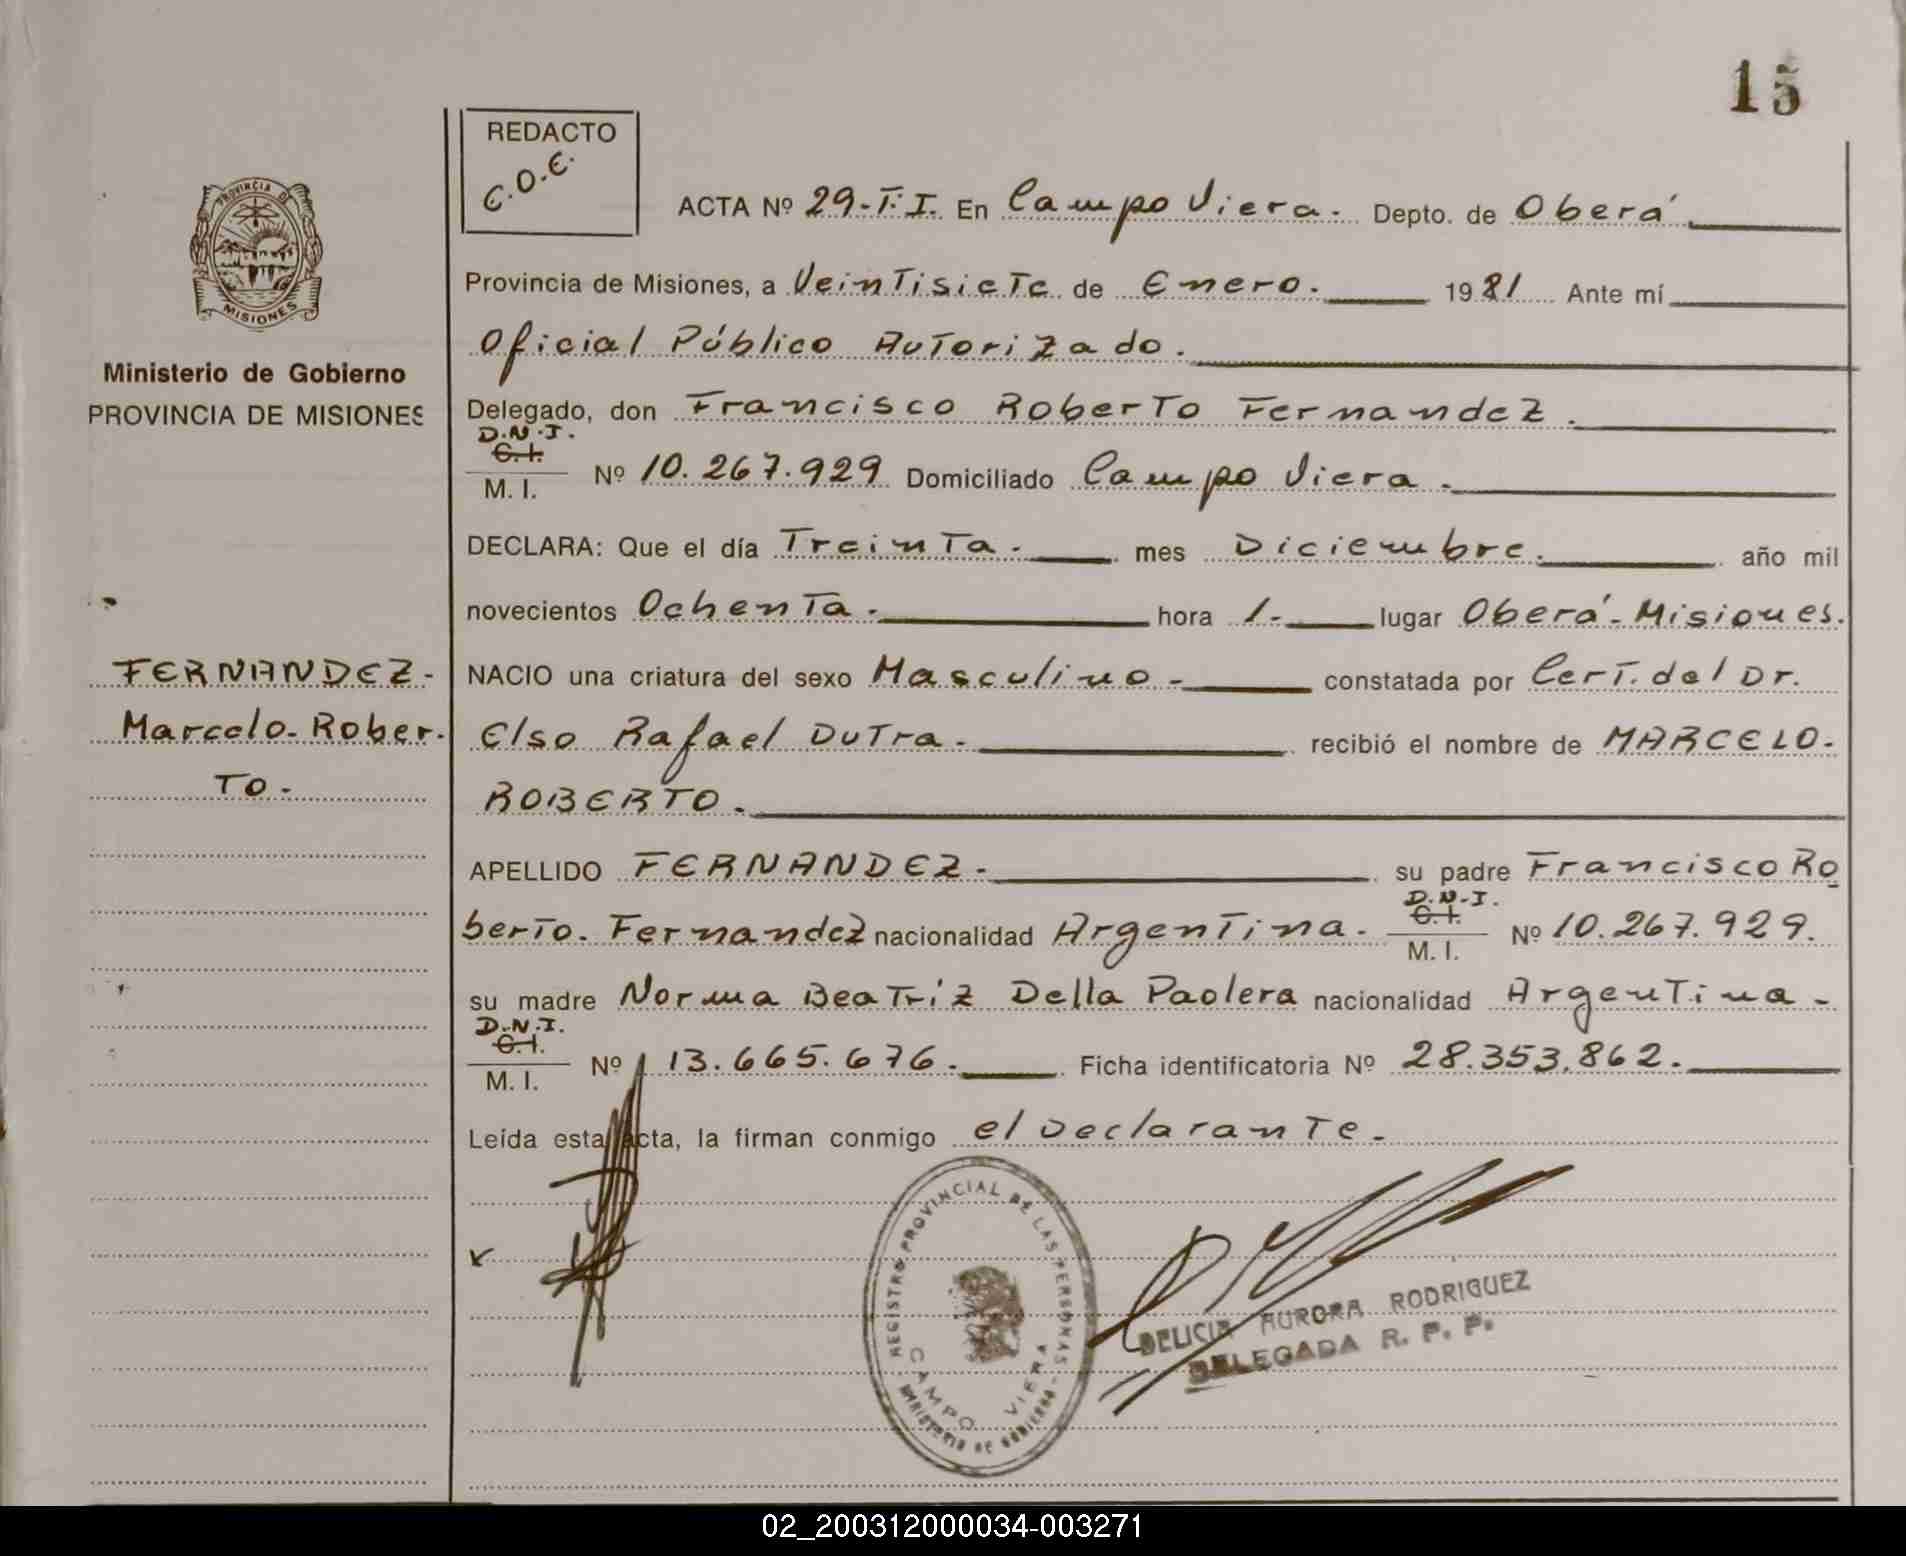 15
REDACTO
C.O.E.
ACTA Nº 29-T.I. En Campo Viera. Depto. de Oberá
Provincia de Misiones, a Veintisiete de Enero. 1981 Ante mí
Oficial Público Autorizado.
Delegado, don Francisco Roberto Fernandez.
D.N.I.
C.I.
M. I. Nº 10.267.929 Domiciliado Campo Viera.
DECLARA: Que el día Treinta. mes Diciembre. año mil
novecientos Ochenta. hora 1.- lugar Oberá-Misiones.
NACIO una criatura del sexo Masculino - constatada por Cert. del Dr.
Elso Rafael Dutra. recibió el nombre de MARCELO-
ROBERTO.
APELLIDO FERNANDEZ. su padre Francisco Ro
D.N.I.
C.I.
berto. Fernandez nacionalidad Argentina. M. I. Nº 10.267.929.
su madre Norma Beatríz Della Paolera nacionalidad Argentina -
D.N.I.
C.I.
M. I. Nº 13.665.676. Ficha identificatoria Nº 28.353.862.
Leída esta acta, la firman conmigo el Declarante.
PROVINCIA DE
MISIONES
Ministerio de Gobierno
PROVINCIA DE MISIONES
FERNANDEZ-
Marcelo-Rober-
TO.
REGISTRO PROVINCIAL DE LAS PERSONAS
CAMPO VIERA
MINISTERIO DE GOBIERNO
DELICIA AURORA RODRIGUEZ
DELEGADA R. P. P.
02_200312000034-003271